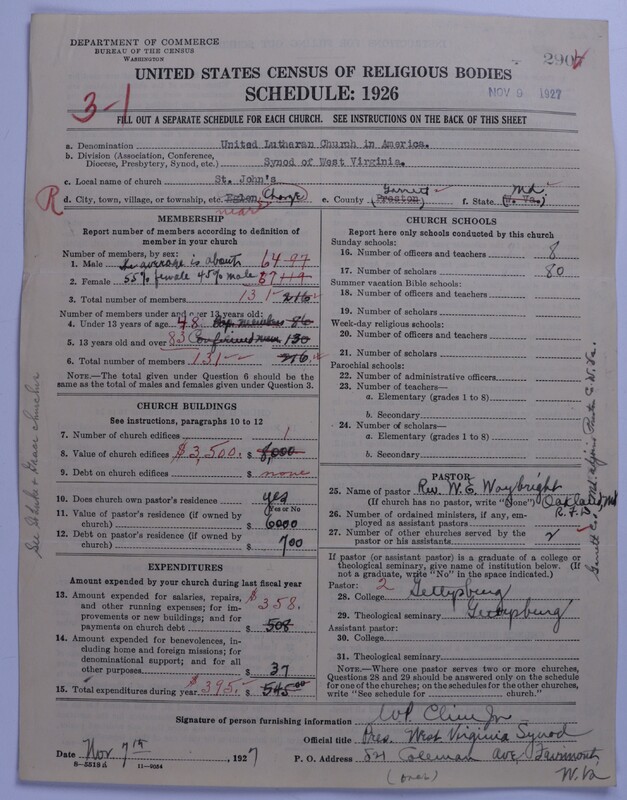 DEPARTMENT OF COMMERCE
BUREAU OF THE CENSUS
WASHINGTON
290
UNITED STATES CENSUS OF RELIGIOUS BODIES
SCHEDULE: 1926
NOV 9 1927
3-1
FILL OUT A SEPARATE SCHEDULE FOR EACH CHURCH. SEE INSTRUCTIONS ON THE BACK OF THIS SHEET
a. Denomination United Lutheran Church in America.
b. Division (Association, Conference,
Diocese, Presbytery, Synod, etc.) Synod of West Virginia.
c. Local name of church St. John's
R d. City, town, village, or township, etc. Eglon Charge e. County Garrett (Preston) f. State Md (W. Va.)
near
MEMBERSHIP
Report number of members according to definition of
member in your church
Number of members, by sex:
1. Male The average is about 64 97
2. Female 55% female 45% male 67 119
3. Total number of members 131 216
Number of members under and over 13 years old:
4. Under 13 years of age 48 members 86
5. 13 years old and over 83 Confirmed mem 130
6. Total number of members 131 216
NOTE.—The total given under Question 6 should be
same as the total of males and females given under Question 3.
CHURCH BUILDINGS
See instructions, paragraphs 10 to 12
7. Number of church edifices 1
8. Value of church edifices $3,500. $ 8,000
9. Debt on church edifices $ none
10. Does church own pastor's residence? yes
Yes or No
11. Value of pastor's residence (if owned by
church) $ 6000
12. Debt on pastor's residence (if owned by
church) $ 700
EXPENDITURES
Amount expended by your church during last fiscal year
13. Amount expended for salaries, repairs,
and other running expenses; for im-
provements or new buildings; and for
payments on church debt $ 358. 508
14. Amount expended for benevolences, in-
cluding home and foreign missions; for
denominational support; and for all
other purposes $ 37
15. Total expenditures during year $395. $ 545.00
CHURCH SCHOOLS
Report here only schools conducted by this church
Sunday schools:
16. Number of officers and teachers 8
17. Number of scholars 80
Summer vacation Bible schools:
18. Number of officers and teachers
19. Number of scholars
Week-day religious schools:
20. Number of officers and teachers
21. Number of scholars
Parochial schools:
22. Number of administrative officers
23. Number of teachers—
a. Elementary (grades 1 to 8)
b. Secondary
24. Number of scholars—
a. Elementary (grades 1 to 8)
b. Secondary
PASTOR
25. Name of pastor Rev. W. E. Waybright
(If church has no pastor, write "None") Oakland Md
R.F.D.
26. Number of ordained ministers, if any, em-
ployed as assistant pastors
27. Number of other churches served by the
pastor or his assistants 2
If pastor (or assistant pastor) is a graduate of a college or
theological seminary, give name of institution below. (If
not a graduate, write "No" in the space indicated.)
Pastor: 2
28. College Gettysburg
29. Theological seminary Gettysburg
Assistant pastor:
30. College
31. Theological seminary
NOTE.—Where one pastor serves two or more churches,
Questions 28 and 29 should be answered only on the schedule
for one of the churches; on the schedules for the other churches,
write "See schedule for church."
Signature of person furnishing information W P Cline Jr
Official title Pres. West Virginia Synod
Date Nov 7th, 1927 P. O. Address 824 Coleman Ave Fairmont,
W. Va
8-5518 a 11-9054
(over)
See & Grace churches
Garrett Co. Md adjoins Preston C. W. Va.